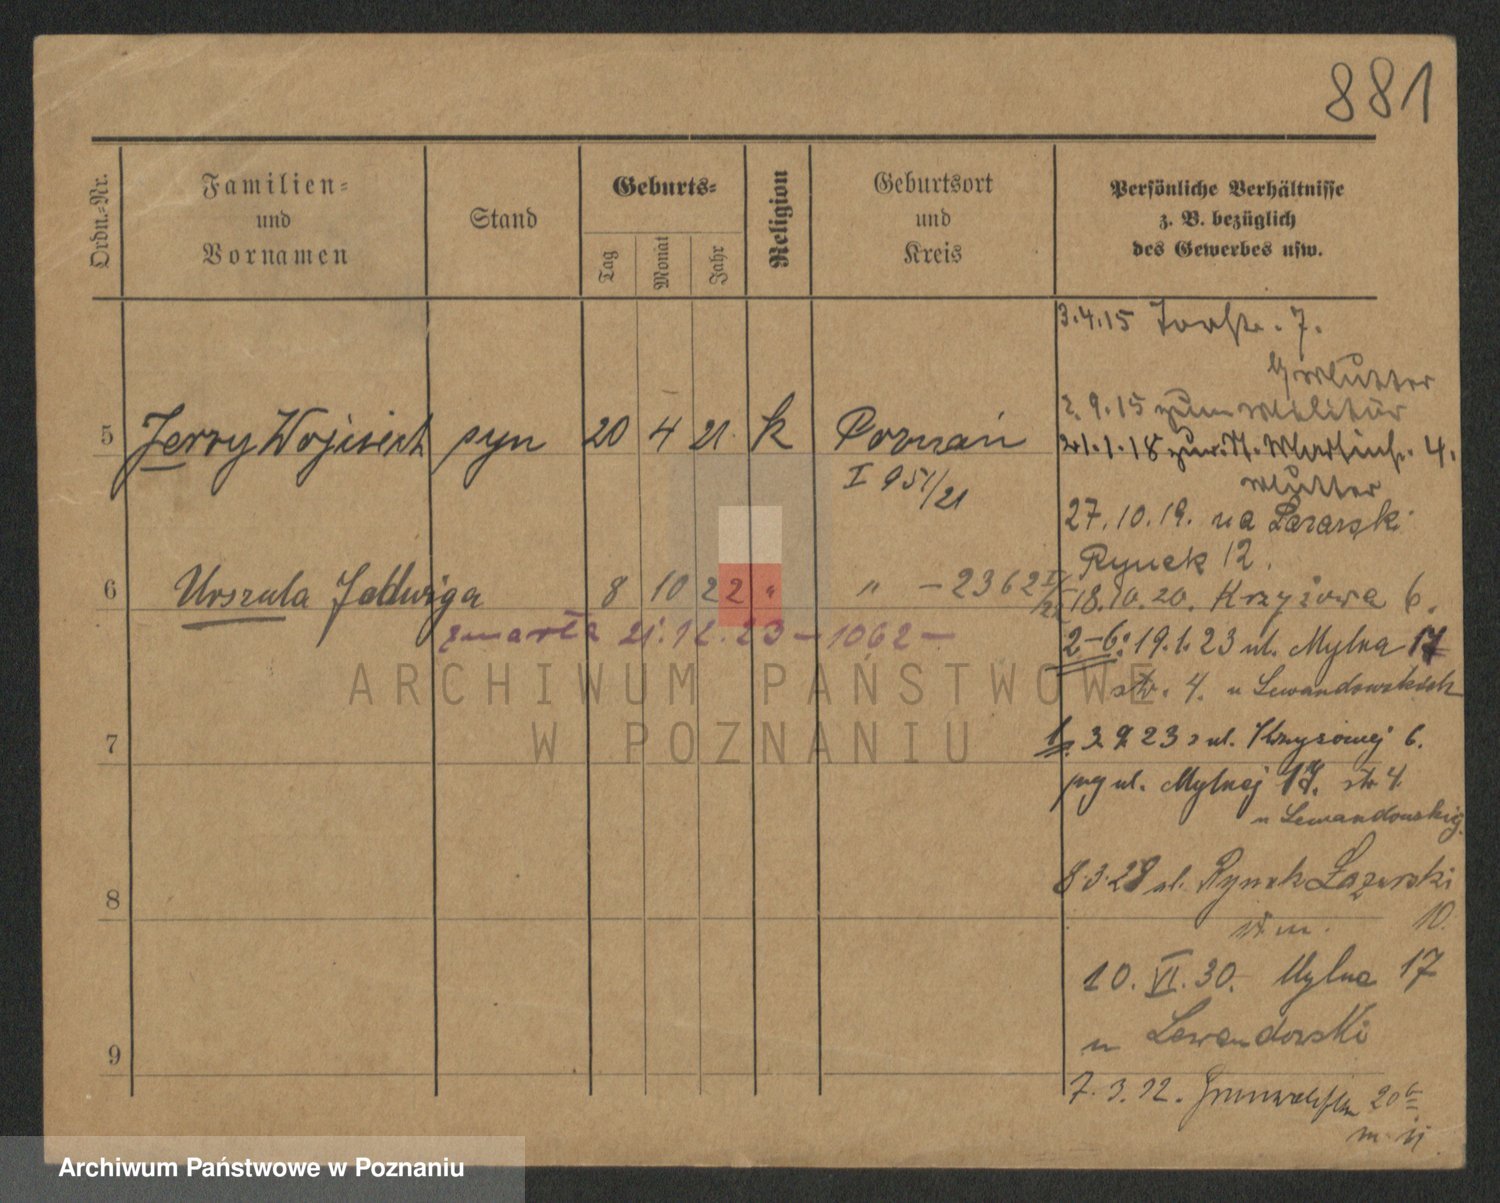 881
Ordn.-Nr.
Familien-
und
Vornamen
Stand
Geburts-
Tag
Monat
Jahr
Religion
Geburtsort
und
Kreis
Persönliche Verhältnisse
z. B. bezüglich
des Gewerbes usw.
3.4.15 7.
Mutter
2.9.15 zum Militär
5 Jerzy Wojciech syn 20 4 21. k Poznań
21.1.18 zur. St. Martinstr. 4.
I 951/21
Mutter
27.10.19. na Łazarski
Rynek 12.
6 Urszula Jadwiga 8 10 22 " " – 2362
18.10.20. Krzyżowa 6.
zmarła 21.12.23 – 1062 –
2-6: 19.1.23 ul. Mylna 17
str. 4. u Lewandowskich
7
1. 3.9.23 z ul. Krzyżowej 6.
przy ul. Mylnej 17. str 4.
u Lewandowskiej.
8
8.3.28 ul. Rynek Łazarski
10.
10. VI. 30. Mylna 17
u Lewandowski
9
7.3.32. 20
ARCHIWUM PAŃSTWOWE
W POZNANIU
Archiwum Państwowe w Poznaniu